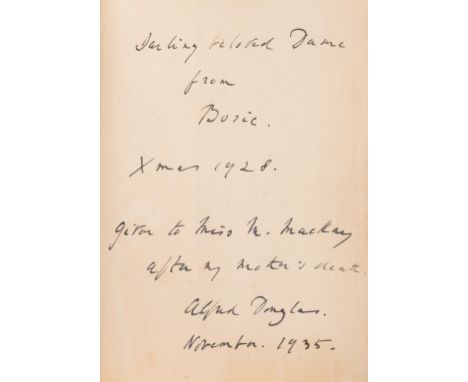 Darling beloved Dame
from
Bosie.
Xmas 1928.
given to Miss M. Mackay
after my mother's death.
Alfred Douglas.
November. 1935.